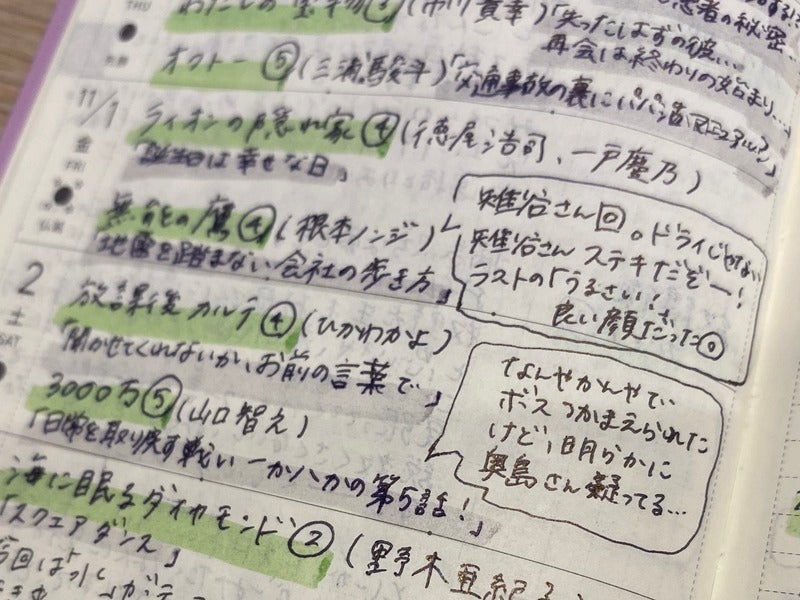 THU
わたしの宝物③(市川貴幸)「失ったはずの彼…
再会は終わりの始まり…」
オクトー⑤(三浦駿斗)「交通事故の裏にパパ活マニュアル?」
11/1
金
FRI
仏滅
ライオンの隠れ家④(徳尾浩司、一戸慶乃)
「誕生日は幸せな日」
無能の鷹④(根本ノンジ)
「地雷を踏まない会社の歩き方」
雉谷さん回。ドライじゃない
雉谷さんステキだぞー!
ラストの「うるさい!」
良い顔だった。
2
土
SAT
放課後カルテ④(ひかわかよ)
「聞かせてくれないか、お前の言葉で」
3000万⑤(山口智之)
「日常を取り戻す戦い 一か八かの第5話!」
なんやかんやで
ボスつかまえられた
けど、明らかに
奥島さん疑ってる…
海に眠るダイヤモンド②(野木亜紀子)
「スクエアダンス」
今回は